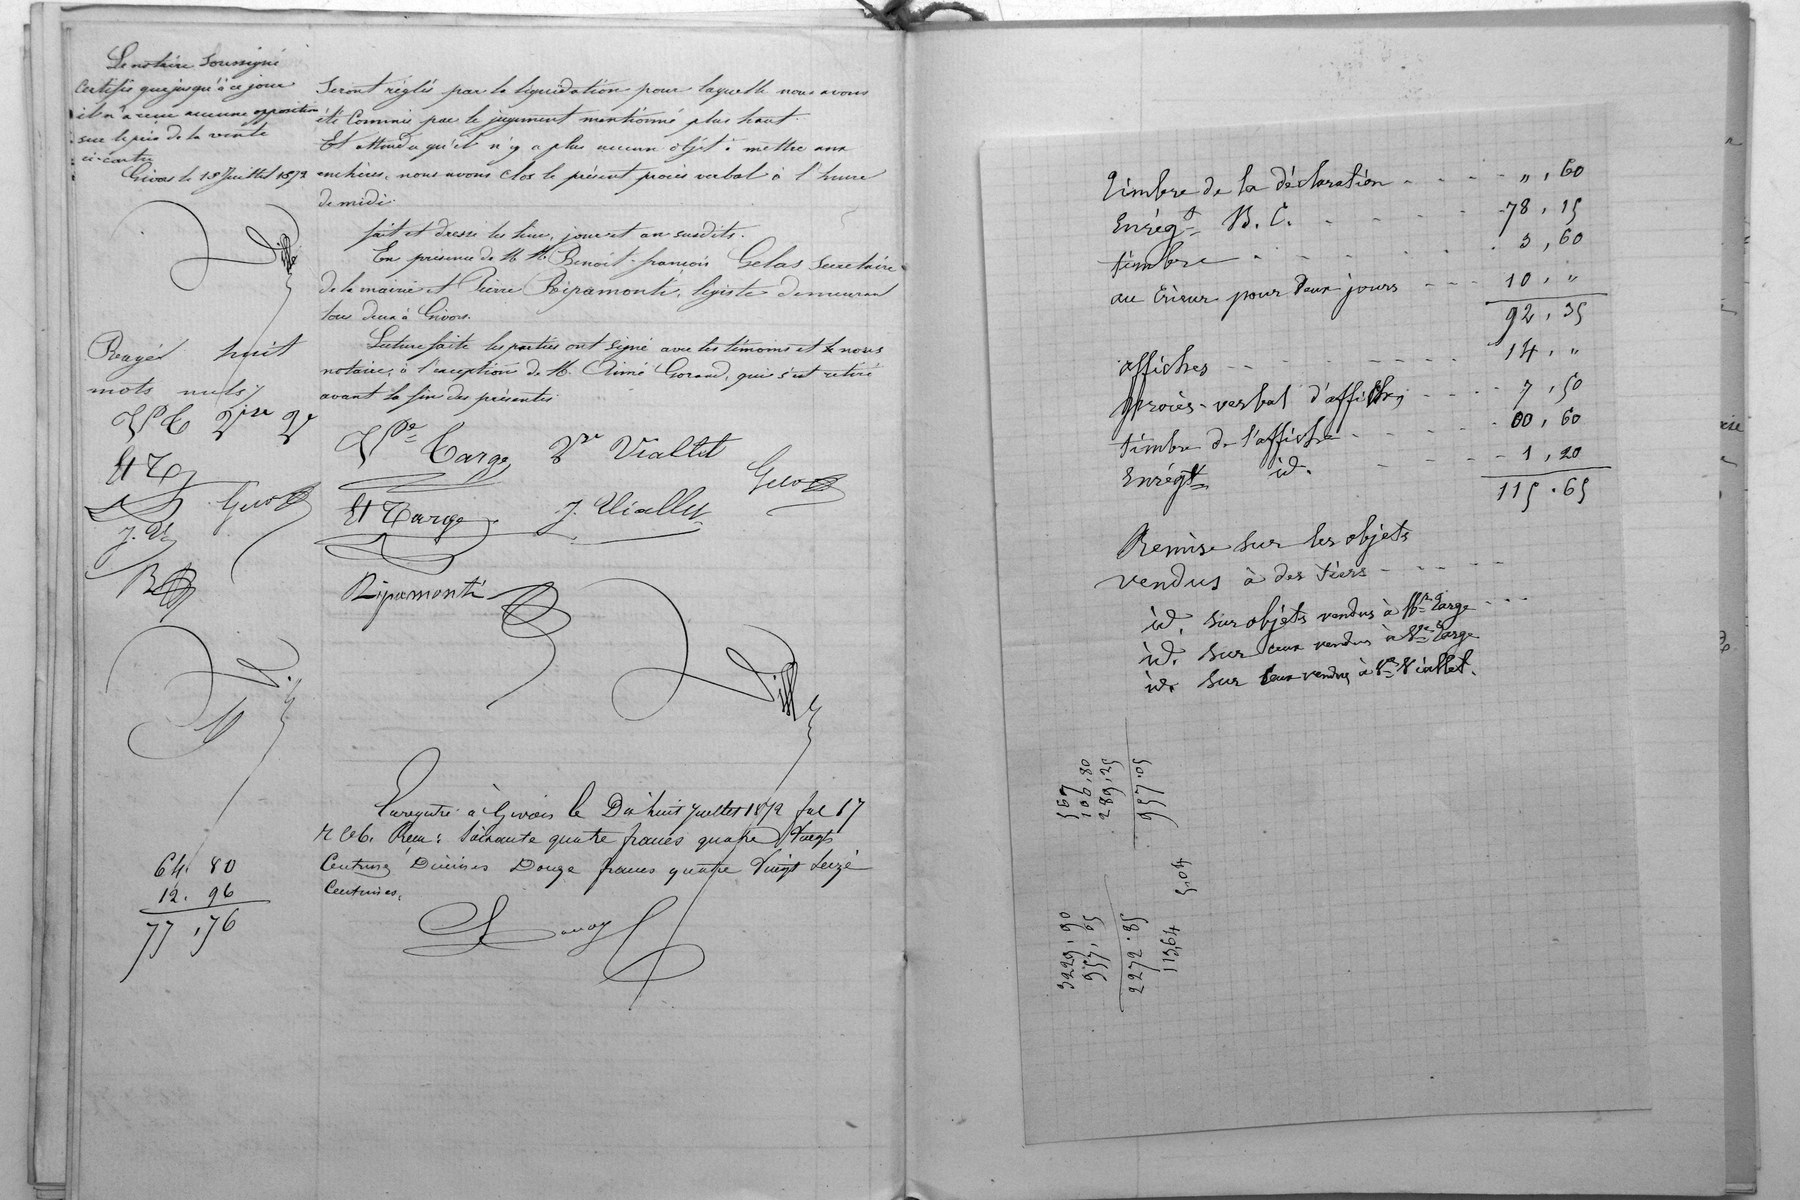 Le notaire soussigné
certifie que jusqu'à ce jour
il n'a reçu aucune opposition
sur le prix de la vente
ci-contre
Givors le 18 Juillet 1872
Rayés huit
mots nuls
Vve C Vve V
H C
J. V
64. 80
12. 96
77, 76
seront réglés par la liquidation pour laquelle nous avons
été commis par le jugement mentionné plus haut.
Et attendu qu'il n'y a plus aucun objet à mettre aux
enchères, nous avons clos le présent procès verbal à l'heure
de midi.
fait et dressé les lieu, jour et an susdits.
En présence de M M. Benoit-françois Gelas secrétaire
de la mairie et Pierre Ripamonti, légiste demeurant
tous deux à Givors.
Lecture faite les parties ont signé avec les témoins et nous
notaire, à l'exception de M. Aimé Goraud, qui s'est retiré
avant la fin des présentes
Vve Targe Vve Viallet
H Targe J. Viallet
Ripamonti
Enregistré à Givors le Dix huit Juillet 1872 fol 17
r C 6. Reçu: Soixante quatre francs quatre vingt
Centimes Décimes Douze francs quatre Vingt Seize
Centimes.
Timbre de la déclaration - - - - " , 60
Enrégt B. C. - - - - 78 , 15
timbre - - - - 3 , 60
au crieur pour deux jours - - - 10 , "
92 , 35
affiches - - - - 14 , "
procès-verbal d'affiches - - - 7 , 50
timbre de l'affiche - - - 00 , 60
Enrégt id. - - - 1 , 20
115 . 65
Remise sur les objets
vendus à des tiers - - - - -
id. sur objets vendus à Mr Targe - - -
id. sur ceux vendus à Vve Targe
id. sur ceux vendus à Vve Viallet.
106,80
289,25
957.05
5,04
3229,90
957,05
2272.85
113,64